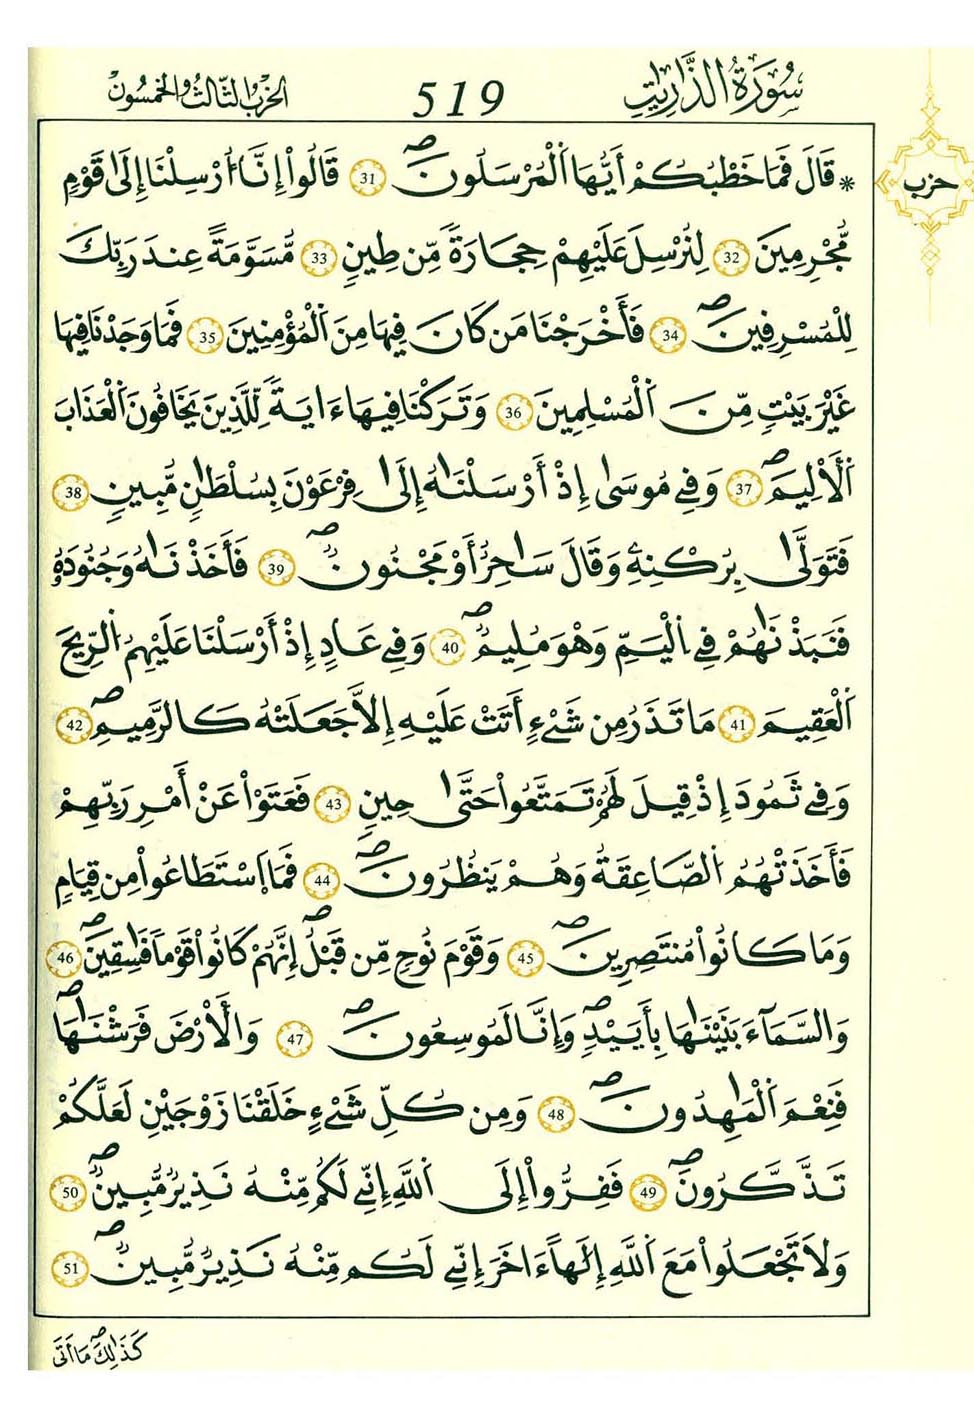 سُورَةُ الذَّارِيَٰتِ 519 الحِزْبُ الثَّالِثُ وَالخَمْسُونَ
حزب
* قَالَ فَمَا خَطْبُكُمْ أَيُّهَا اَ۬لْمُرْسَلُونَۖ 31 قَالُواْ إِنَّا أُرْسِلْنَا إِلَىٰ قَوْمٖ
مُّجْرِمِينَ 32 لِنُرْسِلَ عَلَيْهِمْ حِجَارَةٗ مِّن طِينٖ 33 مُّسَوَّمَةً عِندَ رَبِّكَ
لِلْمُسْرِفِينَۖ 34 فَأَخْرَجْنَا مَن كَانَ فِيهَا مِنَ اَ۬لْمُؤْمِنِينَ 35 فَمَا وَجَدْنَا فِيهَا
غَيْرَ بَيْتٖ مِّنَ اَ۬لْمُسْلِمِينَ 36 وَتَرَكْنَا فِيهَا ءَايَةٗ لِّلَّذِينَ يَخَافُونَ اَ۬لْعَذَابَ
اَ۬لْأَلِيمَۖ 37 وَفِے مُوسَىٰ إِذْ أَرْسَلْنَٰهُ إِلَىٰ فِرْعَوْنَ بِسُلْطَٰنٖ مُّبِينٖ 38
فَتَوَلَّىٰ بِرُكْنِهِۦ وَقَالَ سَٰحِرٌ أَوْ مَجْنُونٞۖ 39 فَأَخَذْنَٰهُ وَجُنُودَهُۥ
فَنَبَذْنَٰهُمْ فِے اِ۬لْيَمِّ وَهْوَ مُلِيمٞۖ 40 وَفِے عَادٍ إِذْ أَرْسَلْنَا عَلَيْهِمُ اُ۬لرِّيحَ
اَ۬لْعَقِيمَ 41 مَا تَذَرُ مِن شَےْءٍ أَتَتْ عَلَيْهِ إِلَّا جَعَلَتْهُ كَالرَّمِيمِۖ 42
وَفِے ثَمُودَ إِذْ قِيلَ لَهُمْ تَمَتَّعُواْ حَتَّىٰ حِينٖ 43 فَعَتَوْاْ عَنْ أَمْرِ رَبِّهِمْ
فَأَخَذَتْهُمُ اُ۬لصَّٰعِقَةُ وَهُمْ يَنظُرُونَۖ 44 فَمَا اَ۪سْتَطَٰعُواْ مِن قِيَامٖ
وَمَا كَانُواْ مُنتَصِرِينَۖ 45 وَقَوْمَ نُوحٖ مِّن قَبْلُۖ إِنَّهُمْ كَانُواْ قَوْماٗ فَٰسِقِينَۖ 46
وَالسَّمَآءَ بَنَيْنَٰهَا بِأَيْيْدٖۖ وَإِنَّا لَمُوسِعُونَۖ 47 وَالْأَرْضَ فَرَشْنَٰهَاۖ
فَنِعْمَ اَ۬لْمَٰهِدُونَۖ 48 وَمِن كُلِّ شَےْءٍ خَلَقْنَا زَوْجَيْنِ لَعَلَّكُمْ
تَذَّكَّرُونَۖ 49 فَفِرُّواْ إِلَى اَ۬للَّهِ إِنِّے لَكُم مِّنْهُ نَذِيرٞ مُّبِينٞۖ 50
وَلَا تَجْعَلُواْ مَعَ اَ۬للَّهِ إِلَٰهاً ءَاخَرَ إِنِّے لَكُم مِّنْهُ نَذِيرٞ مُّبِينٞۖ 51
كَذَٰلِكَۖ مَا أَتَى